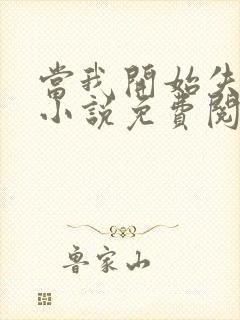 當我開始失
小說免費閱
魯家山